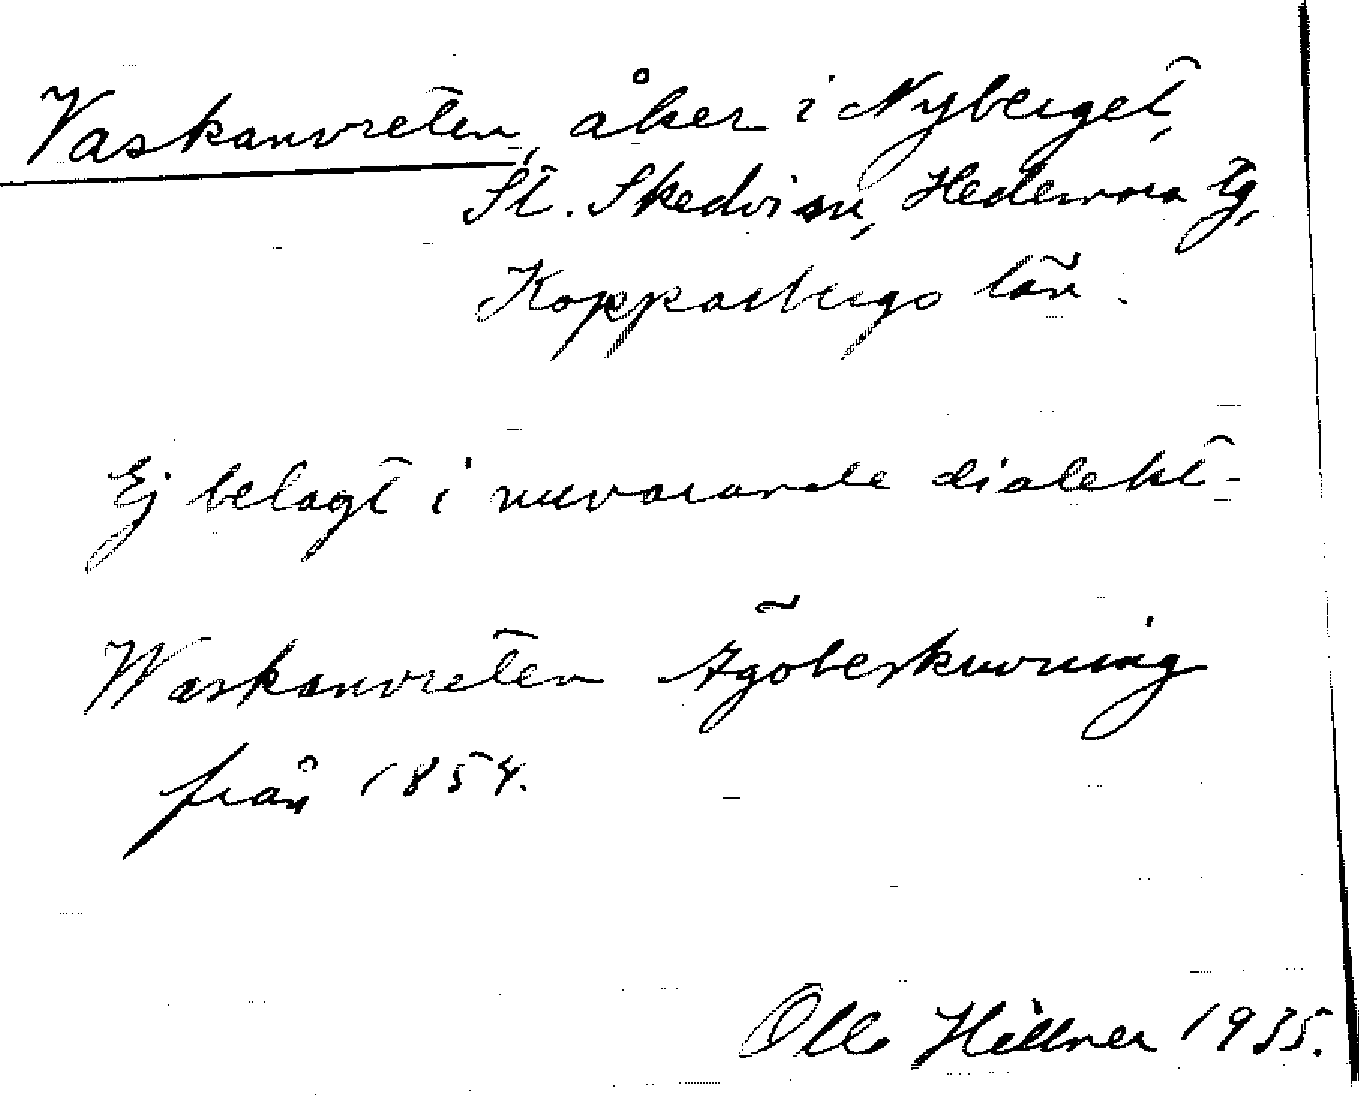 Vaskanvreten, åker i Nyberget,
St. Skedvi sn, Hedemora tg,
Kopparbergs län.
Ej belagt i nuvarande dialekt.
Waskanvreten Ägobeskrivning
från 1854.
Olle Hillner 1935.